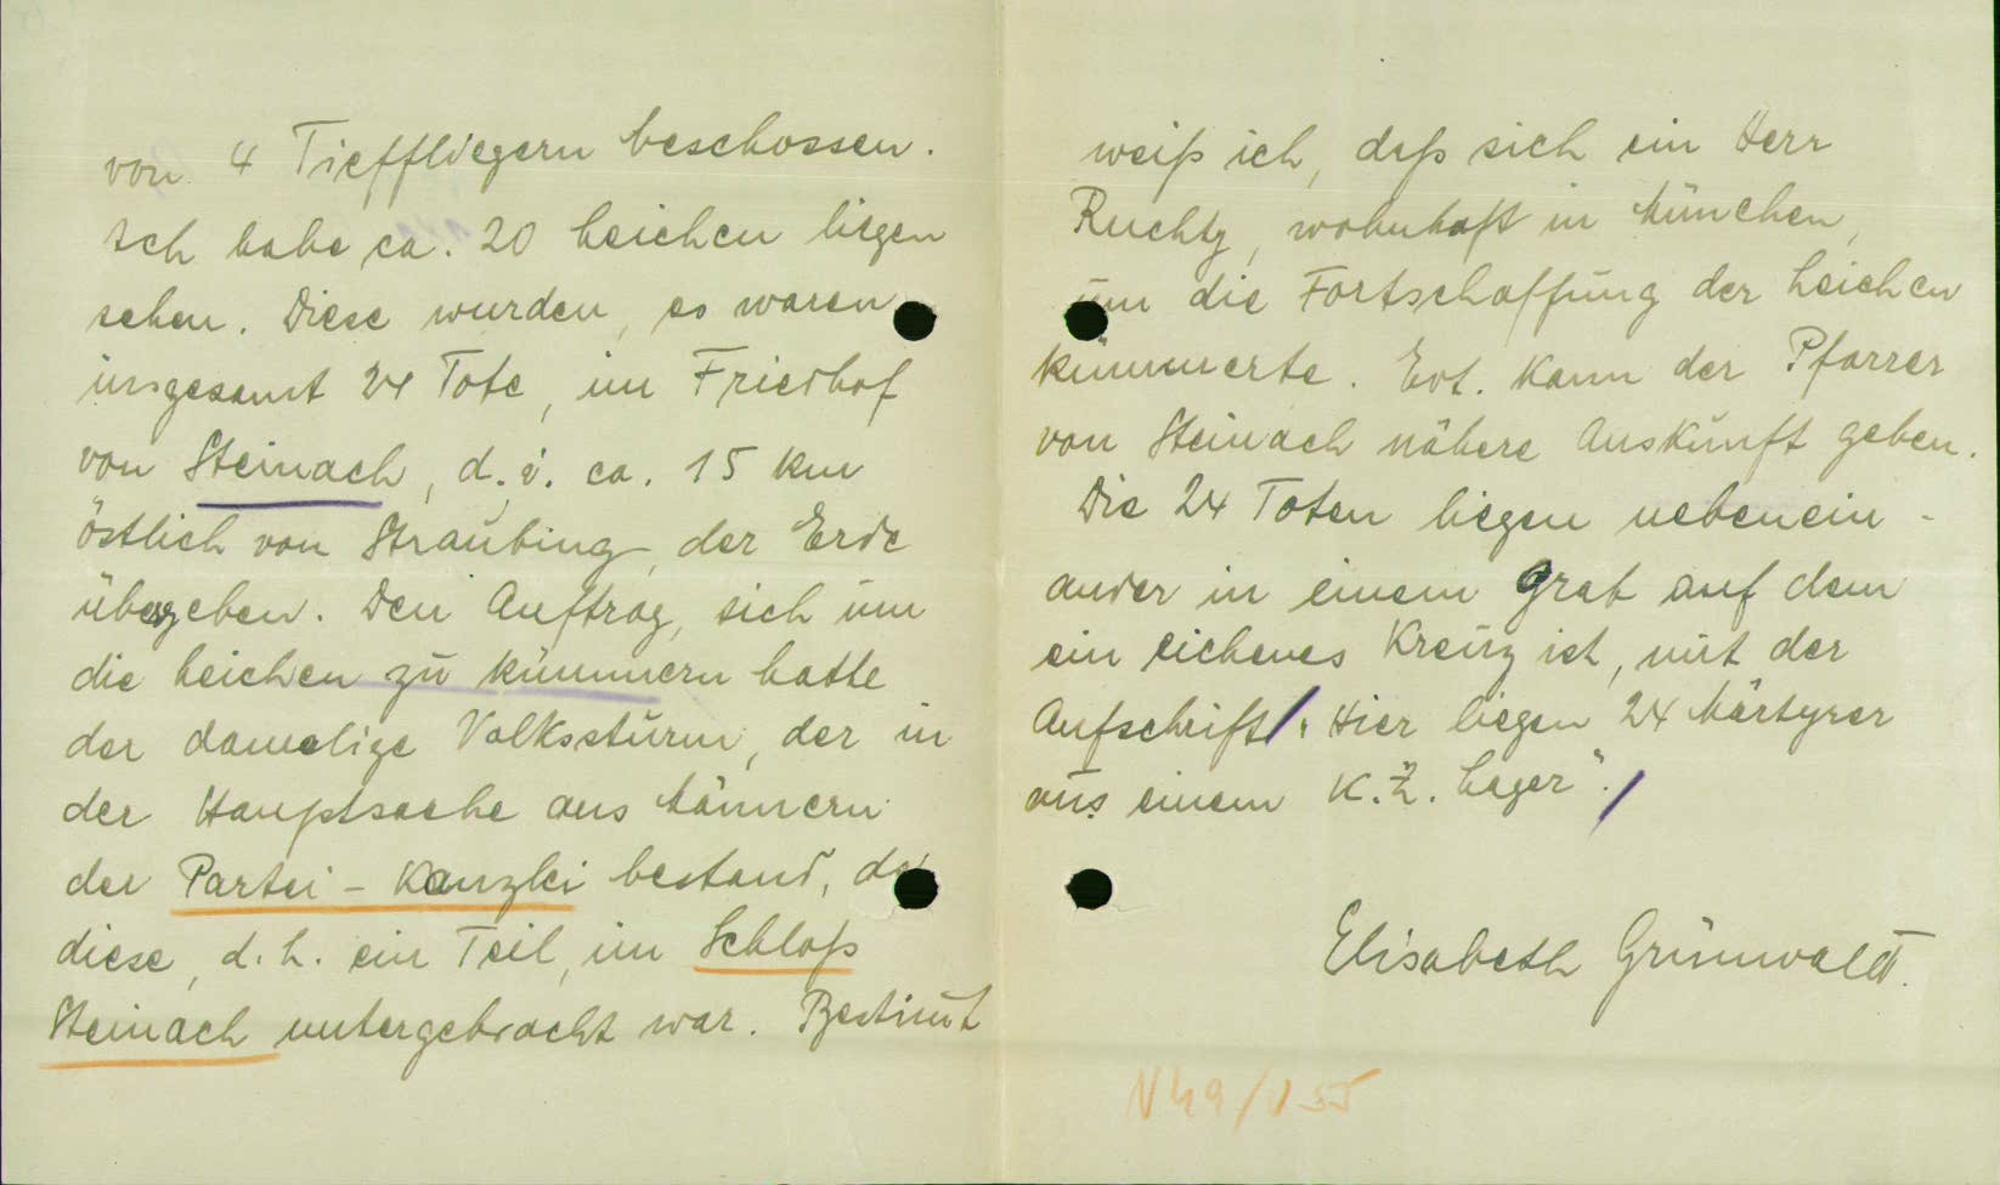 von 4 Tieffliegern beschossen.
Ich habe ca. 20 Leichen liegen
sehen. Diese wurden, es waren
insgesamt 24 Tote, im Friedhof
von Steinach, d. i. ca. 15 km
östlich von Straubing, der Erde
übergeben. Den Auftrag, sich um
die Leichen zu kümmern hatte
der damalige Volkssturm, der in
der Hauptsache aus Männern
der Partei-Kanzlei bestand, da
diese, d. h. ein Teil, im Schloß
Steinach untergebracht war. Bestimt
weiß ich, daß sich ein Herr
Ruchty, wohnhaft in München,
um die Fortschaffung der Leichen
kümmerte. Evt. kann der Pfarrer
von Steinach nähere Auskunft geben.
Die 24 Toten liegen nebenein-
ander in einem Grab auf dem
ein eichenes Kreuz ist, mit der
Aufschrift: Hier liegen 24 Märtyrer
aus einem K.Z. Lager".
Elisabeth Grünwald.